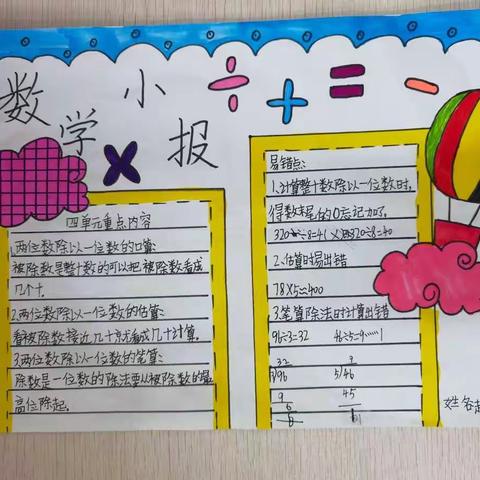 数学小报
÷ + = -
×
四单元重点内容
1.两位数除以一位数的口算:
被除数是整十数的可以把被除数看成
几个十.
2.两位数除以一位数的估算:
看被除数接近几十就看成几十计算。
3.两位数除以一位数的笔算:
除数是一位数的除法要从被除数的最
高位除起。
易错点:
1.计算整十数除以一位数时,
得数末尾的0忘记加了。
2.估算时易出错
78×5≈400
3.笔算除法时计算出错
96÷3=32 46÷5=9……1
32 9
3/96 5/46
9 45
6 1
6
姓名